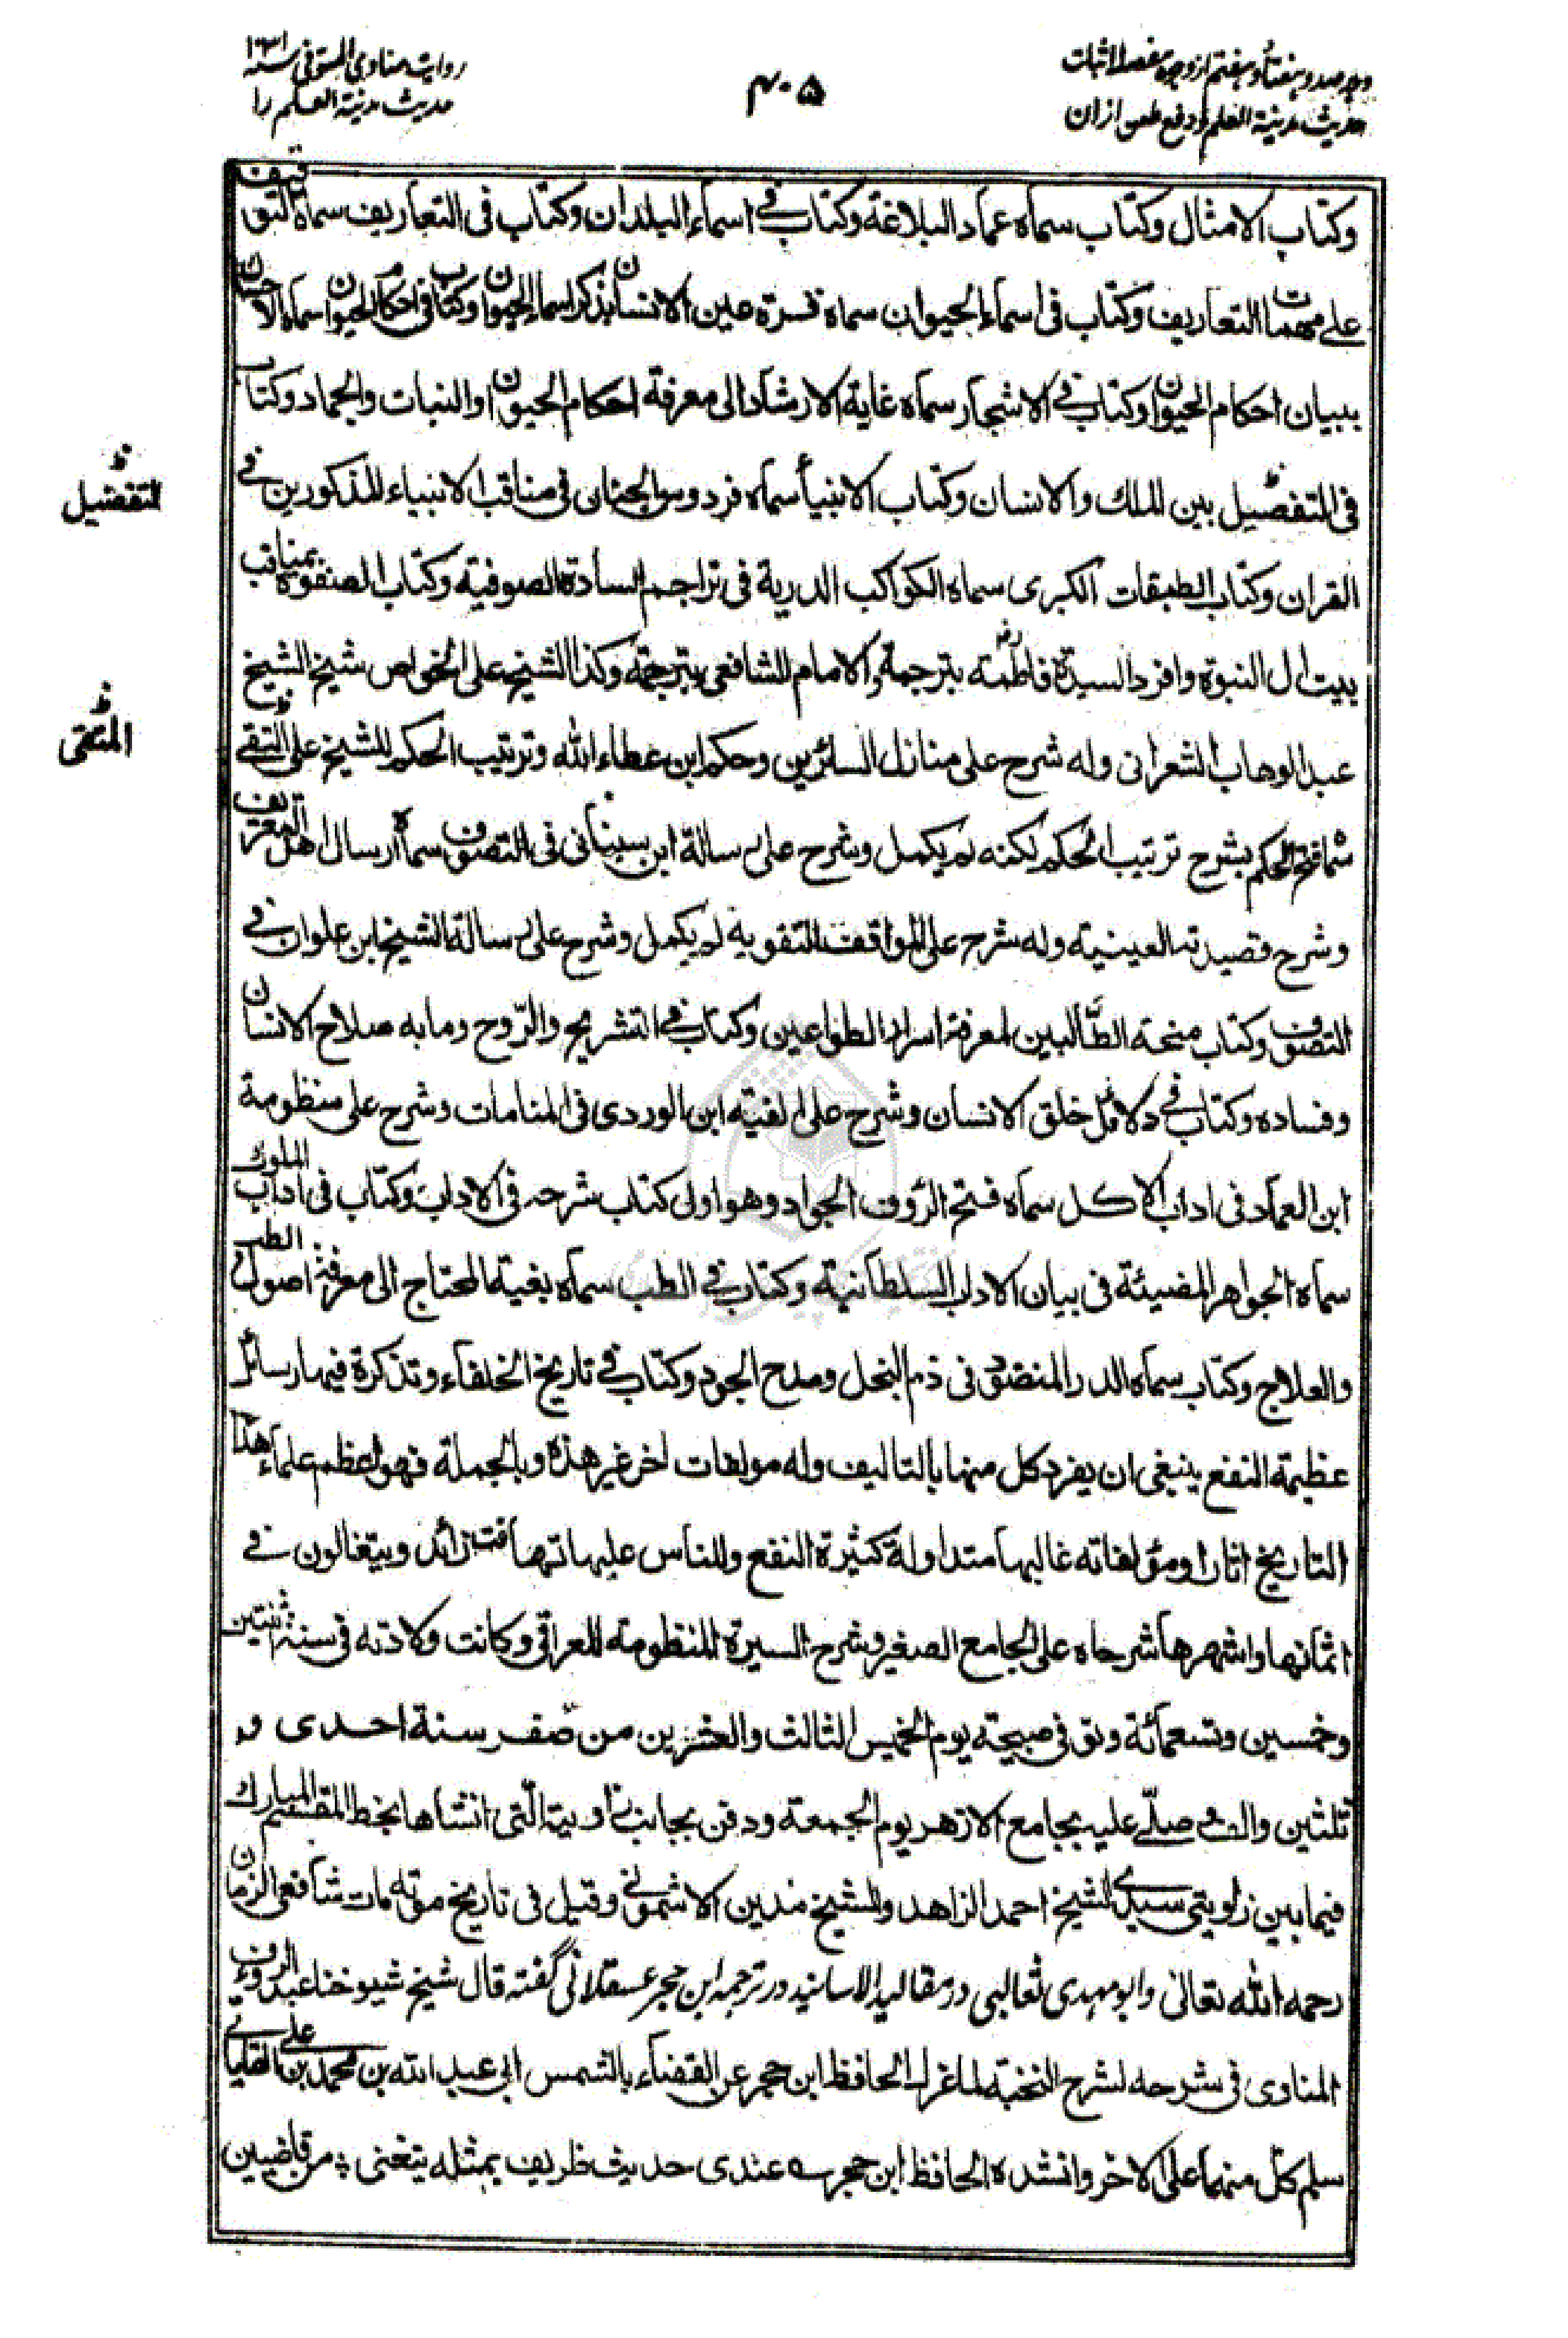 وجه صد و هفتاد و هفتم از وجوه مفصله اثبات
حدیث مدینة العلم و دفع طعن از ان
۴۰۵
روایت مناوی المتوفی سنه ۱۰۳۱
حدیث مدینة العلم را
وكتاب الامثال وكتاب سماه عماد البلاغة وكتاب في اسماء البلدان وكتاب في التعاريف سماه التوقيف
على مهمات التعاريف وكتاب في اسماء الحيوان سماه قرة عين الانسان بذكر اسماء الحيوان وكتاب في احكام الحيوان سماه الاحسان
ببيان احكام الحيوان وكتاب في الاشجار سماه غاية الارشاد الى معرفة احكام الحيوان والنبات والجماد وكتاب
في التفضيل بين الملك والانسان وكتاب الانبياء سماه فردوس الجنان في مناقب الانبياء المذكورين في
التفضيل
القران وكتاب الطبقات الكبرى سماه الكواكب الدرية في تراجم السادة الصوفية وكتاب الصفوة بمناقب
بيت ال النبوة وافرد السيدة فاطمة بترجمة والامام الشافعي بترجمة وكذا الشيخ على الخواص شيخ الشيخ
عبد الوهاب الشعراني وله شرح على منازل السائرين وحكم ابن عطاء الله وترتيب الحكم للشيخ على التقي
المتقى
سماه فتح الحكم بشرح ترتيب الحكم لكنه لم يكمل وشرح على رسالة ابن سينا في التصوف سماه ارسال اهل التعريف
وشرح قصيدته العينية وله شرح على المواقف التقوية لم يكمل وشرح على رسالة الشيخ ابن علوان في
التصوف وكتاب منحة الطالبين لمعرفة اسرار الطواعين وكتاب في التشريح والروح وما به صلاح الانسان
وفساده وكتاب في دلائل خلق الانسان وشرح على الفية ابن الوردى في المنامات وشرح على منظومة
ابن العماد في اداب الاكل سماه فتح الرؤف الجواد وهو اول كتاب شرحه في الاداب وكتاب في اداب الملوك
سماه الجواهر المضيئة في بيان الاداب السلطانية وكتاب في الطب سماه بغية المحتاج الى معرفة اصول الطب
والعلاج وكتاب سماه الدر المنضود في ذم البخل ومدح الجود وكتاب في تاريخ الخلفاء وتذكرة فيها رسائل
عظيمة النفع ينبغي ان يفرد كل منها بالتاليف وله مولفات اخر غير هذه وبالجملة فهو اعظم علماء هذا
التاريخ اثارا ومؤلفاته غالبها متداولة كثيرة النفع وللناس عليها تهافت زائد ويتغالون في
اثمانها واشهرها شرحاه على الجامع الصغير وشرح السيرة المنظومة للعراقي وكانت ولادته في سنة ثنتين
وخمسين وتسعمائة وتوفى صبيحة يوم الخميس الثالث والعشرين من صفر سنة احدى و
ثلثين والف وصلى عليه بجامع الازهر يوم الجمعة ودفن بجانب زاويته التى انشاها بخط المقسم المبارك
فيما بين زاويتى سيدى الشيخ احمد الزاهد والشيخ مدين الاشموني وقيل في تاريخ موته مات شافعى الزمان
رحمه الله تعالى وابو مهدى ثعالبى در مقاليد الاسانيد در ترجمه ابن حجر عسقلانى گفته قال شيخ شيوخنا عبد الرؤف
المناوى في شرحه لشرح النخبة لما عزل الحافظ ابن حجر عن القضاء بالشمس ابى عبد الله بن محمد بن على القاياتي
سلم كل منهما على الاخر وانشده الحافظ ابن حجر عندى حديث ظريف بمثله يتغنى من قاضيين